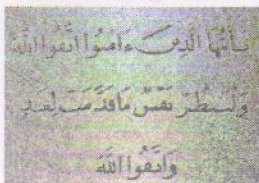 يَـٰٓأَيُّهَا ٱلَّذِينَ ءَامَنُوا۟ ٱتَّقُوا۟ ٱللَّهَ
وَلْتَنظُرْ نَفْسٌ مَّا قَدَّمَتْ لِغَدٍ
وَٱتَّقُوا۟ ٱللَّهَ